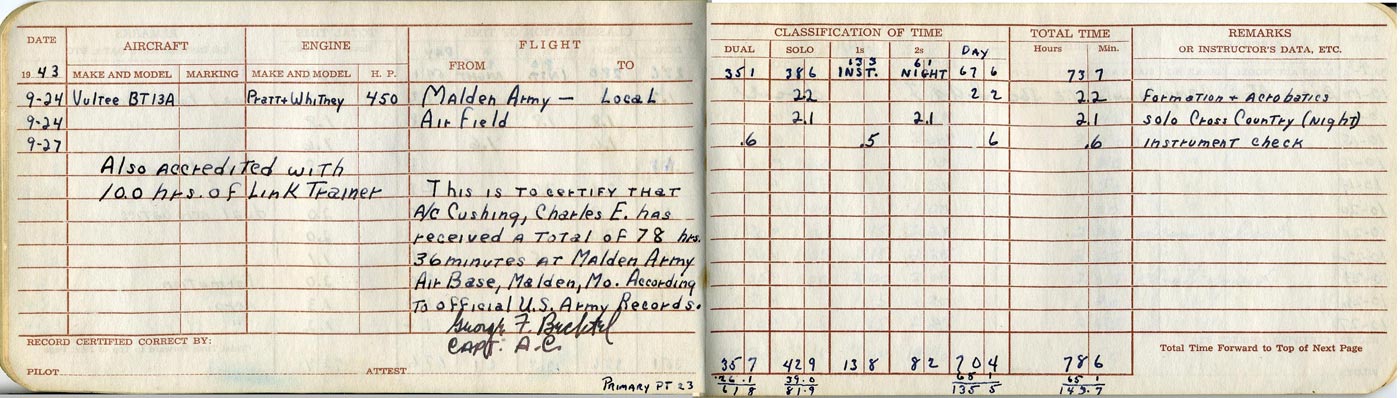 DATE AIRCRAFT ENGINE FLIGHT
1943 MAKE AND MODEL MARKING MAKE AND MODEL H. P. FROM TO
9-24 Vultee BT13A Pratt+Whitney 450 Malden Army — Local
9-24 Air Field
9-27
Also Accredited with
10.0 hrs. of Link Trainer
This is to certify that
A/c Cushing, Charles E. has
received a total of 78 hrs.
36 minutes at Malden Army
Air Base, Malden, Mo. According
to official U.S. Army Records.
George F. Bechtel
Capt. A.C.
RECORD CERTIFIED CORRECT BY:
PILOT ATTEST
Primary PT 23
CLASSIFICATION OF TIME TOTAL TIME REMARKS
DUAL SOLO 1s 2s Day Hours Min. OR INSTRUCTOR'S DATA, ETC.
13 3 6 1
35 1 38 6 INST. NIGHT 67 6 73 7
2 2 2 2 2.2 Formation + Acrobatics
2.1 2.1 2.1 Solo Cross Country (Night)
.6 .5 6 .6 Instrument check
Total Time Forward to Top of Next Page
35 7 42 9 13 8 8 2 70 4 78 6
26.1 39.0 65 1 65 1
61 8 81.9 135 5 143.7